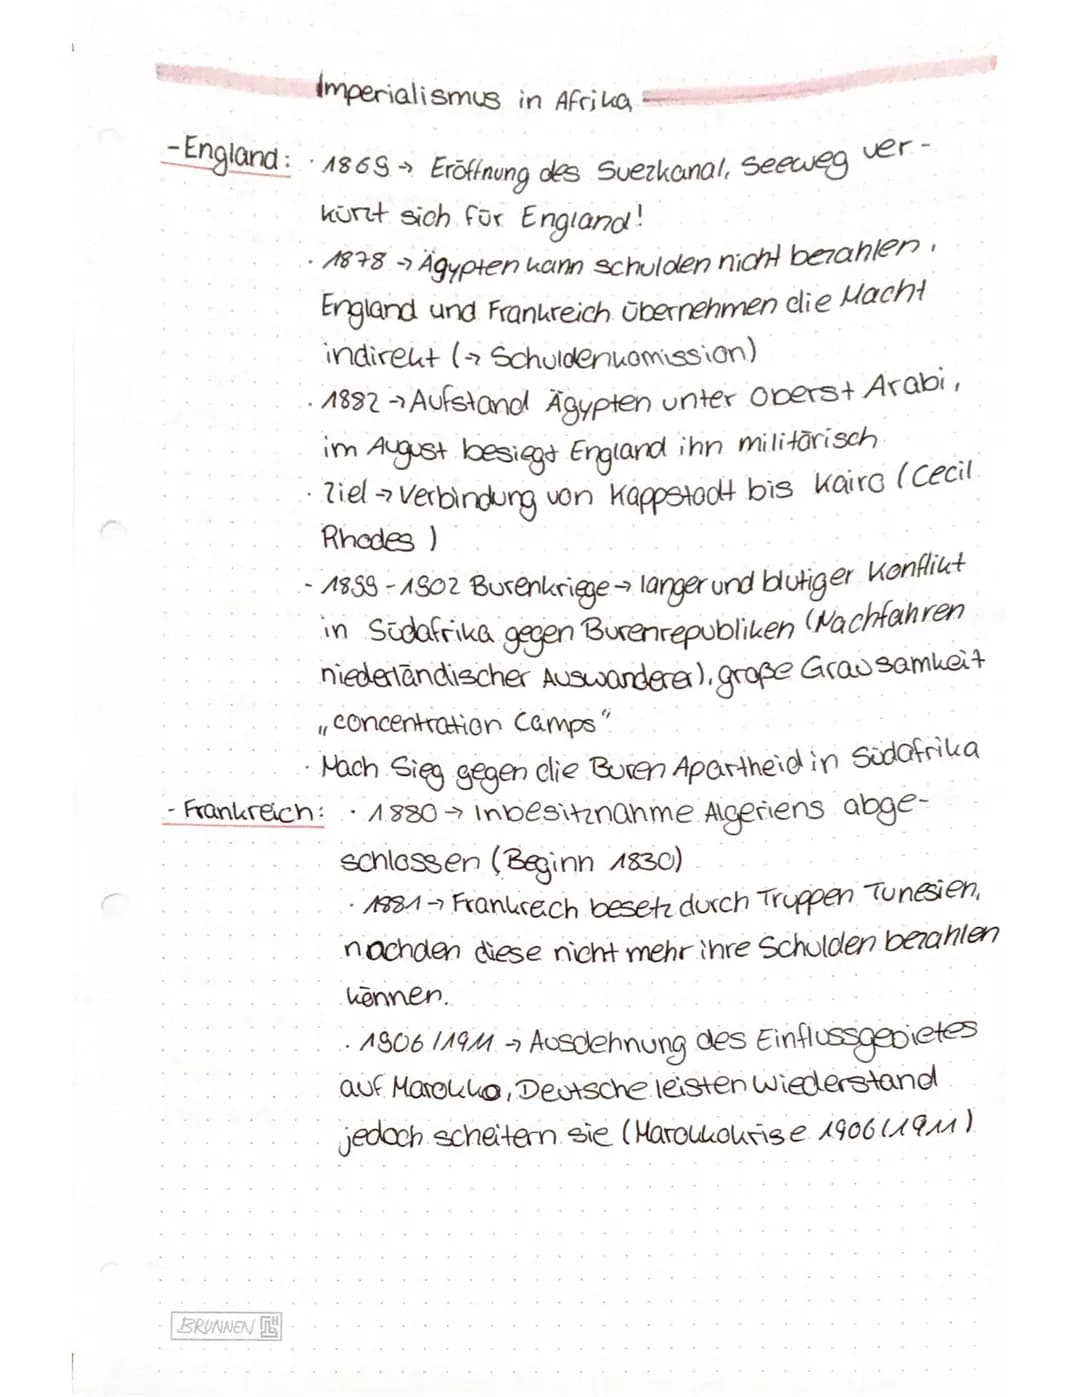 Imperialismus in Afrika
- England: · 1869 → Eröffnung des Suezkanal, Seeweg ver-
kürzt sich für England!
· 1878 → Ägypten kann schulden nicht bezahlen,
England und Frankreich übernehmen die Macht
indirekt (→ Schuldenkomission)
· 1882 → Aufstand Ägypten unter Oberst Arabi,
im August besiegt England ihn militärisch
· Ziel → Verbindung von Kappstadt bis Kairo (Cecil
Rhodes)
- 1899 - 1902 Burenkriege → langer und blutiger Konflikt
in Südafrika gegen Burenrepubliken (Nachfahren
niederländischer Auswanderer), große Grausamkeit
„concentration camps“
· Nach Sieg gegen die Buren Apartheid in Südafrika
- Frankreich: · 1880 → Inbesitznahme Algeriens abge-
schlossen (Beginn 1830)
· 1881 → Frankreich besetz durch Truppen Tunesien,
nachden diese nicht mehr ihre Schulden bezahlen
können.
· 1906/1911 → Ausdehnung des Einflussgebietes
auf Marokko, Deutsche leisten Wiederstand
jedoch scheitern sie (Marokkokrise 1906/1911)
BRUNNEN